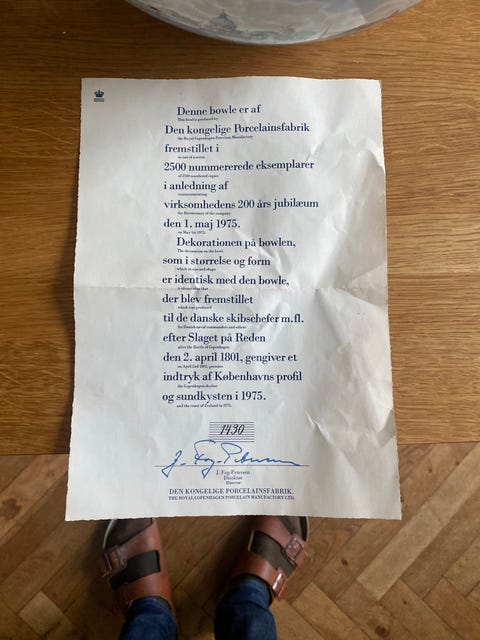 Denne bowle er af
This bowl is produced by
Den kongelige Porcelainsfabrik
the Royal Copenhagen Porcelain Manufactory
fremstillet i
2500 nummererede eksemplarer
of 2500 numbered copies
i anledning af
commemorating
virksomhedens 200 års jubilæum
the Bicentenary of the company
den 1. maj 1975.
on May 1st 1975.
Dekorationen på bowlen,
The decoration on the bowl,
som i størrelse og form
which in size and shape
er identisk med den bowle,
is identical with that
der blev fremstillet
which was produced
til de danske skibschefer m.fl.
for Danish naval commanders and others
efter Slaget på Reden
after the Battle of Copenhagen
den 2. april 1801, gengiver et
on April 2nd 1801, presents
indtryk af Københavns profil
the Copenhagen skyline
og sundkysten i 1975.
and the coast of Zealand in 1975.
1430
J. Fog-Petersen
J. Fog-Petersen
Direktør
Director
DEN KONGELIGE PORCELAINSFABRIK.
THE ROYAL COPENHAGEN PORCELAIN MANUFACTORY LTD.